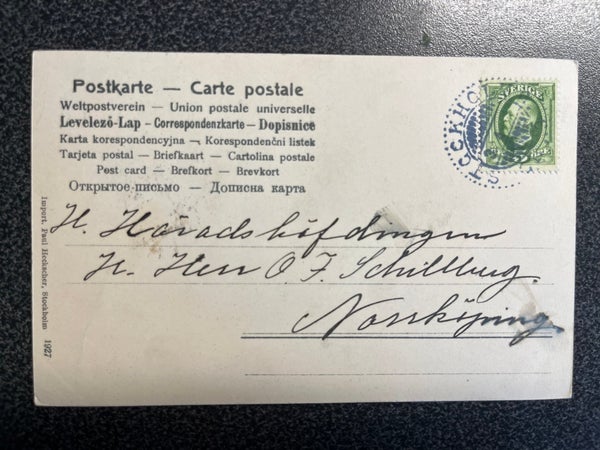 Postkarte — Carte postale
Weltpostverein — Union postale universelle
Levelező-Lap — Correspondenzkarte — Dopisnice
Karta korespondencyjna — Korespondenční listek
Tarjeta postal — Briefkaart — Cartolina postale
Post card — Brefkort — Brevkort
Открытое письмо — Дописна карта
SVERIGE
H. Häradshöfdingen
H. Herr O. F. Schillberg.
Norrköping
Import. Paul Heckscher, Stockholm 1927